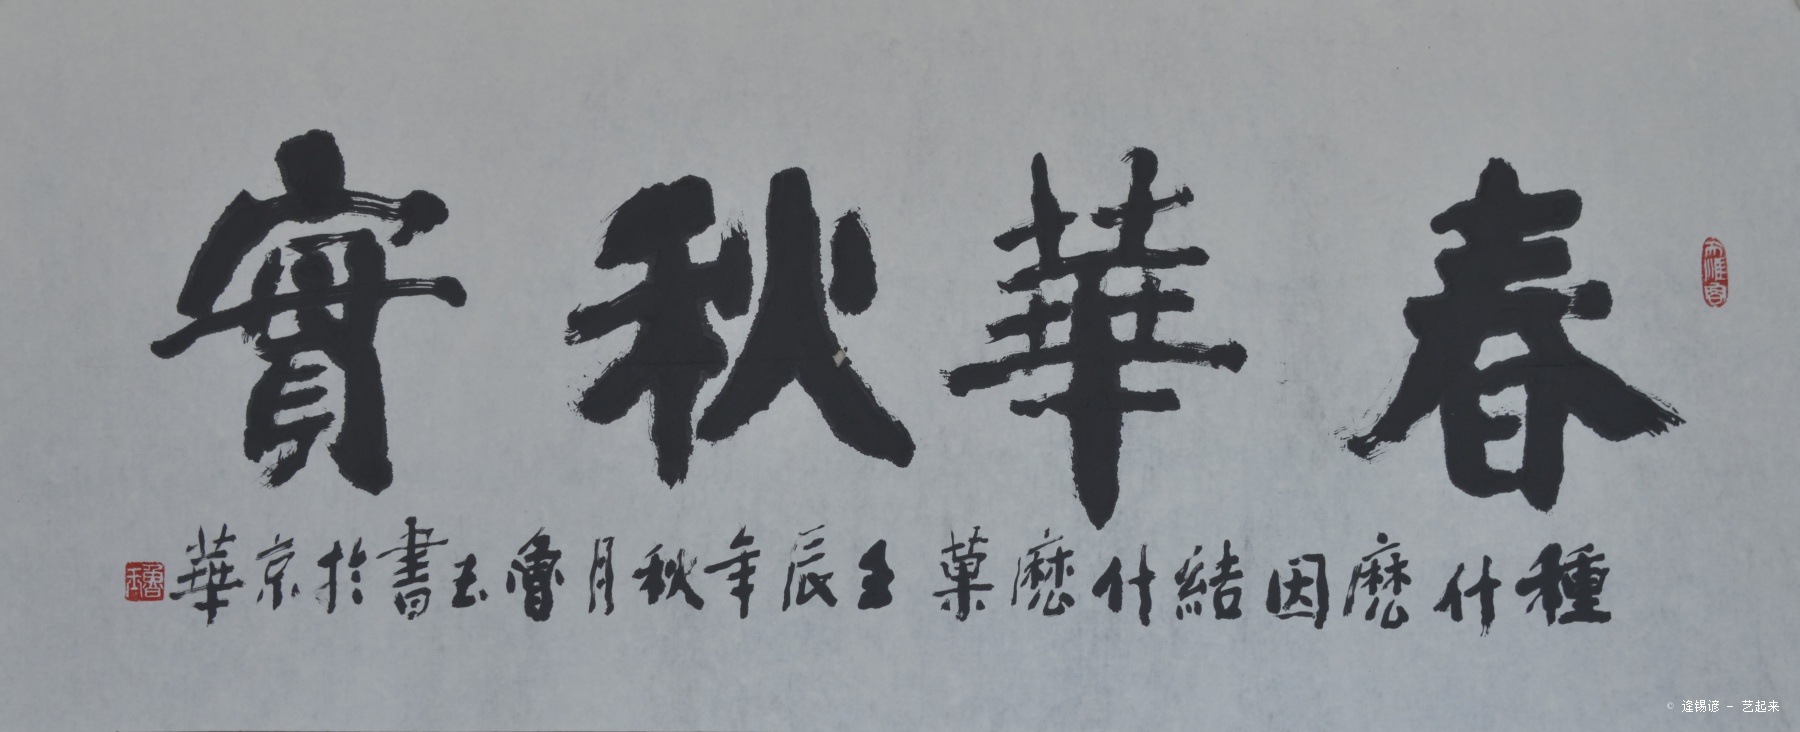 春華秋實
種什麽因結什麽菓 壬辰年秋月魯玉書於京華
© 逄锡谚 - 艺起来